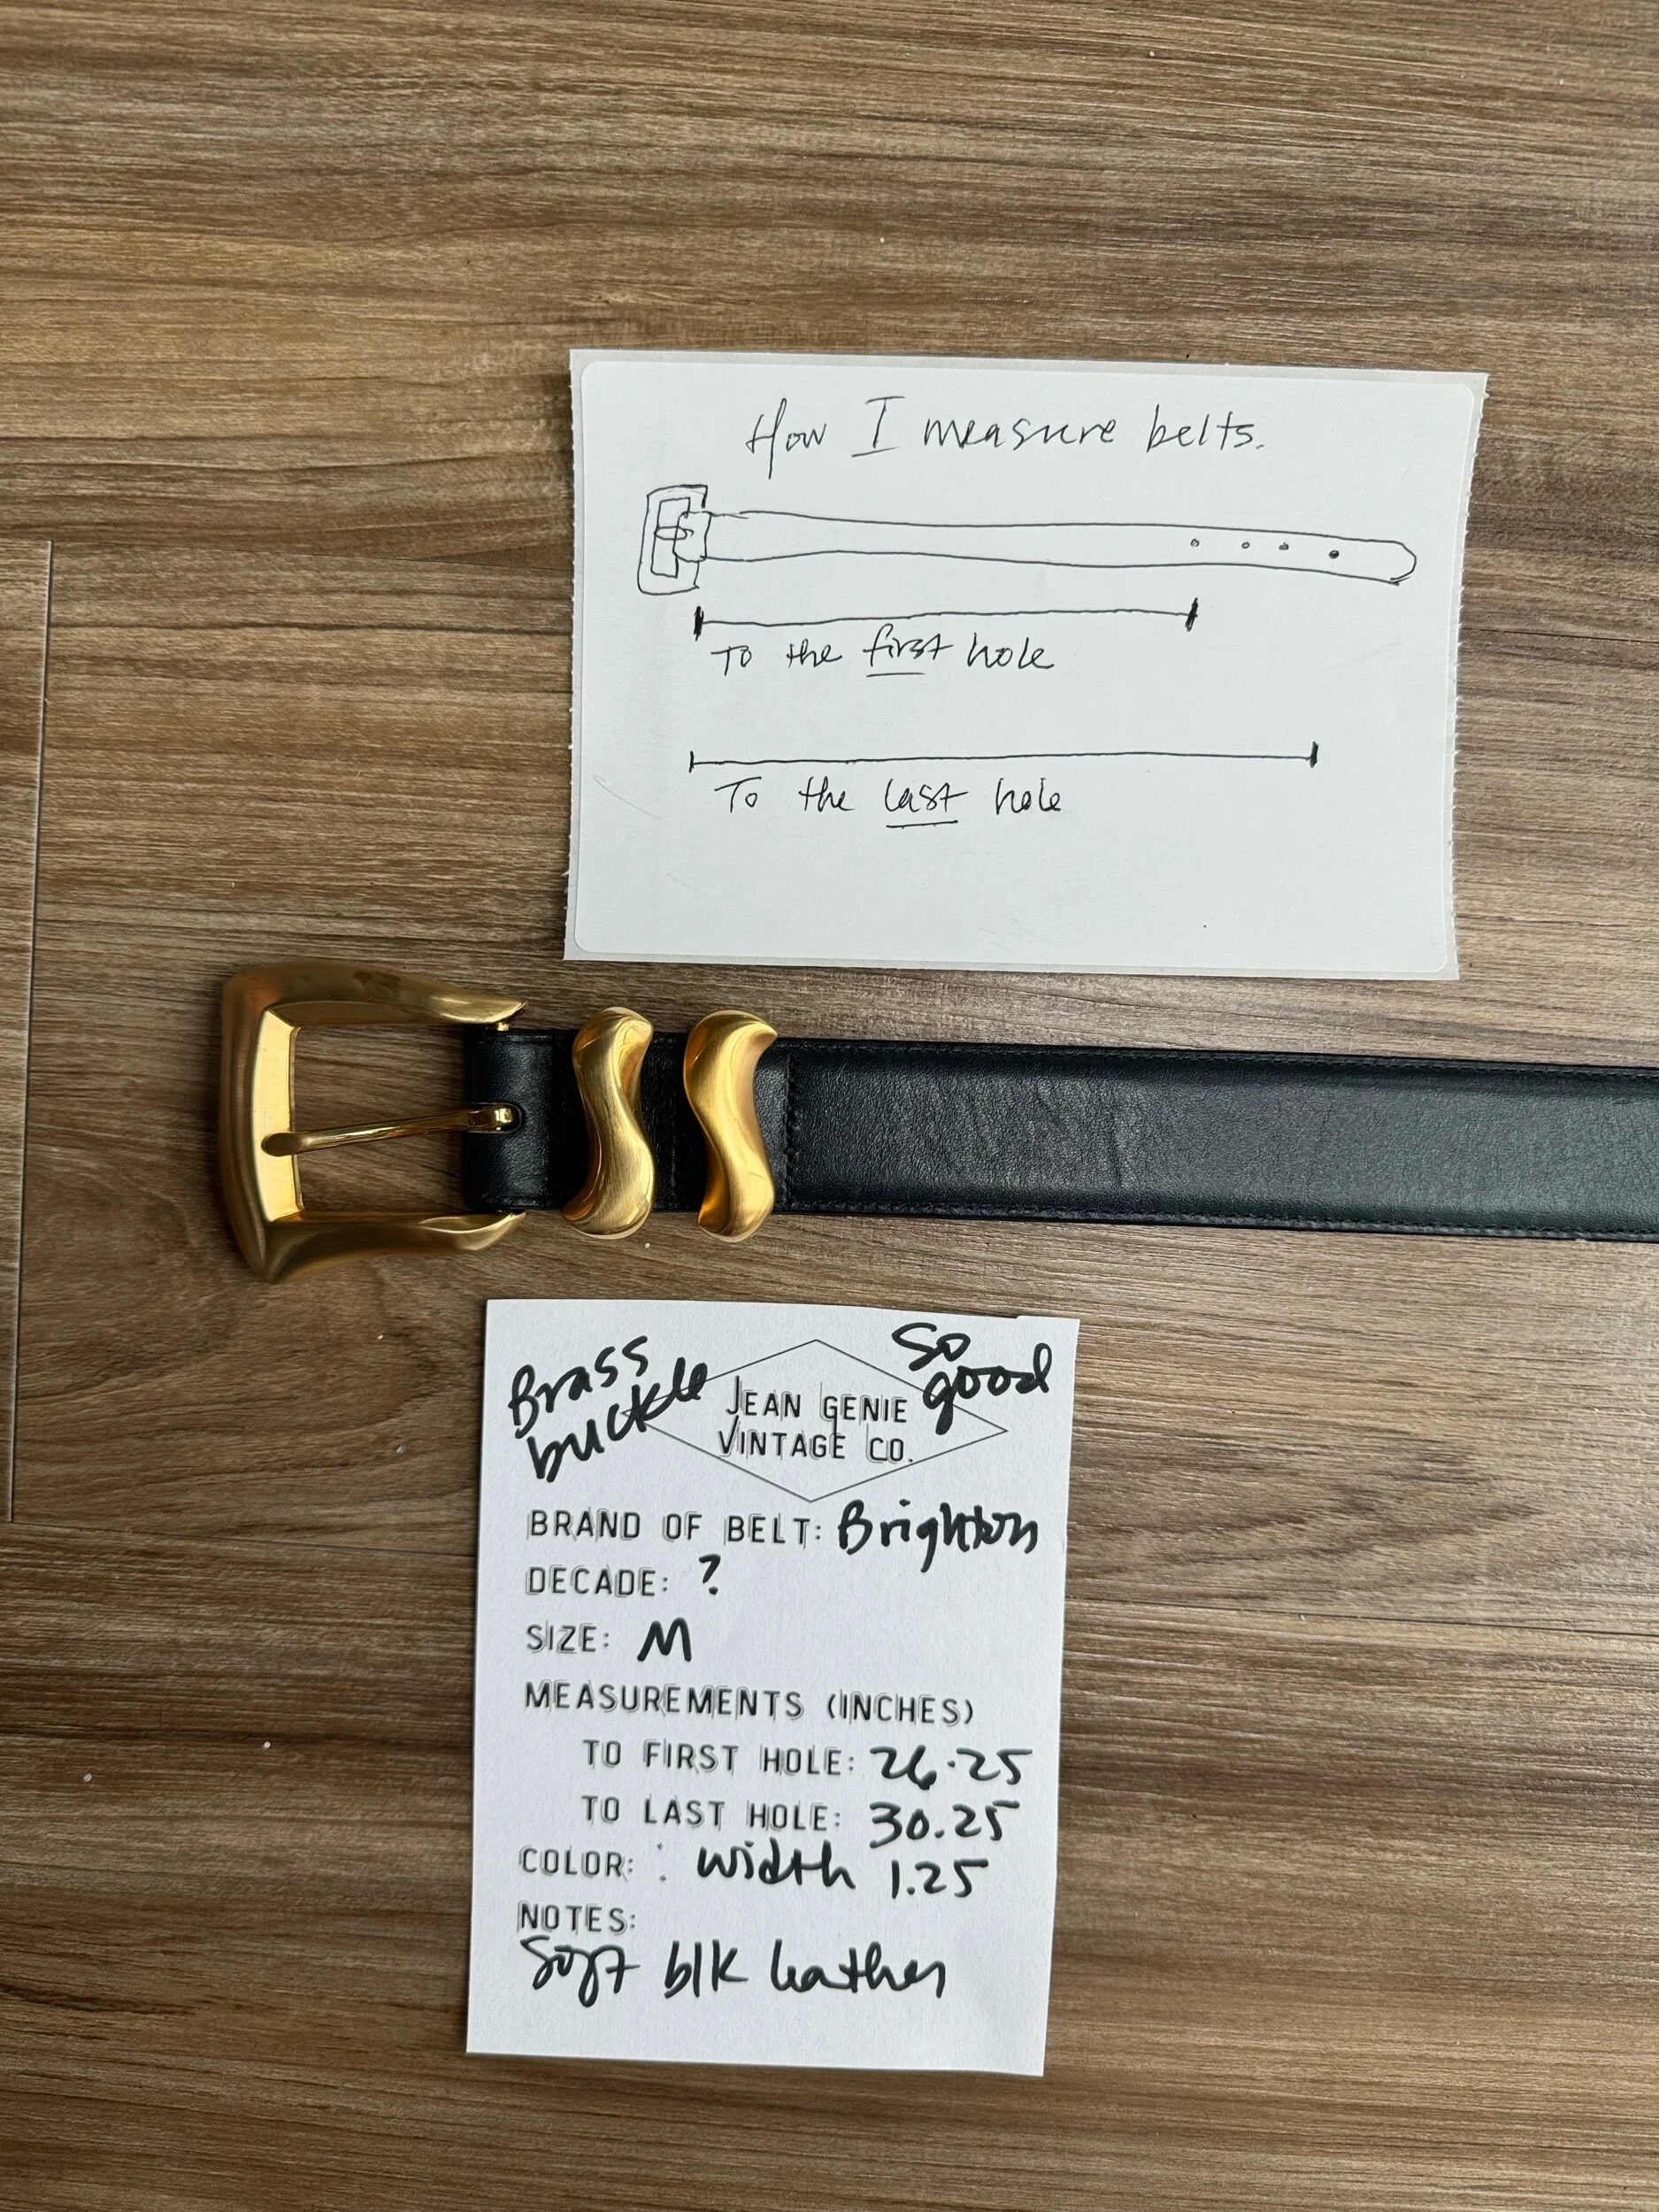 How I measure belts.
To the first hole
To the last hole
Brass
buckle
So
good
JEAN GENIE
VINTAGE CO.
BRAND OF BELT: Brighton
DECADE: ?
SIZE: M
MEASUREMENTS (INCHES)
TO FIRST HOLE: 26.25
TO LAST HOLE: 30.25
COLOR: : width 1.25
NOTES:
Soft blk leather